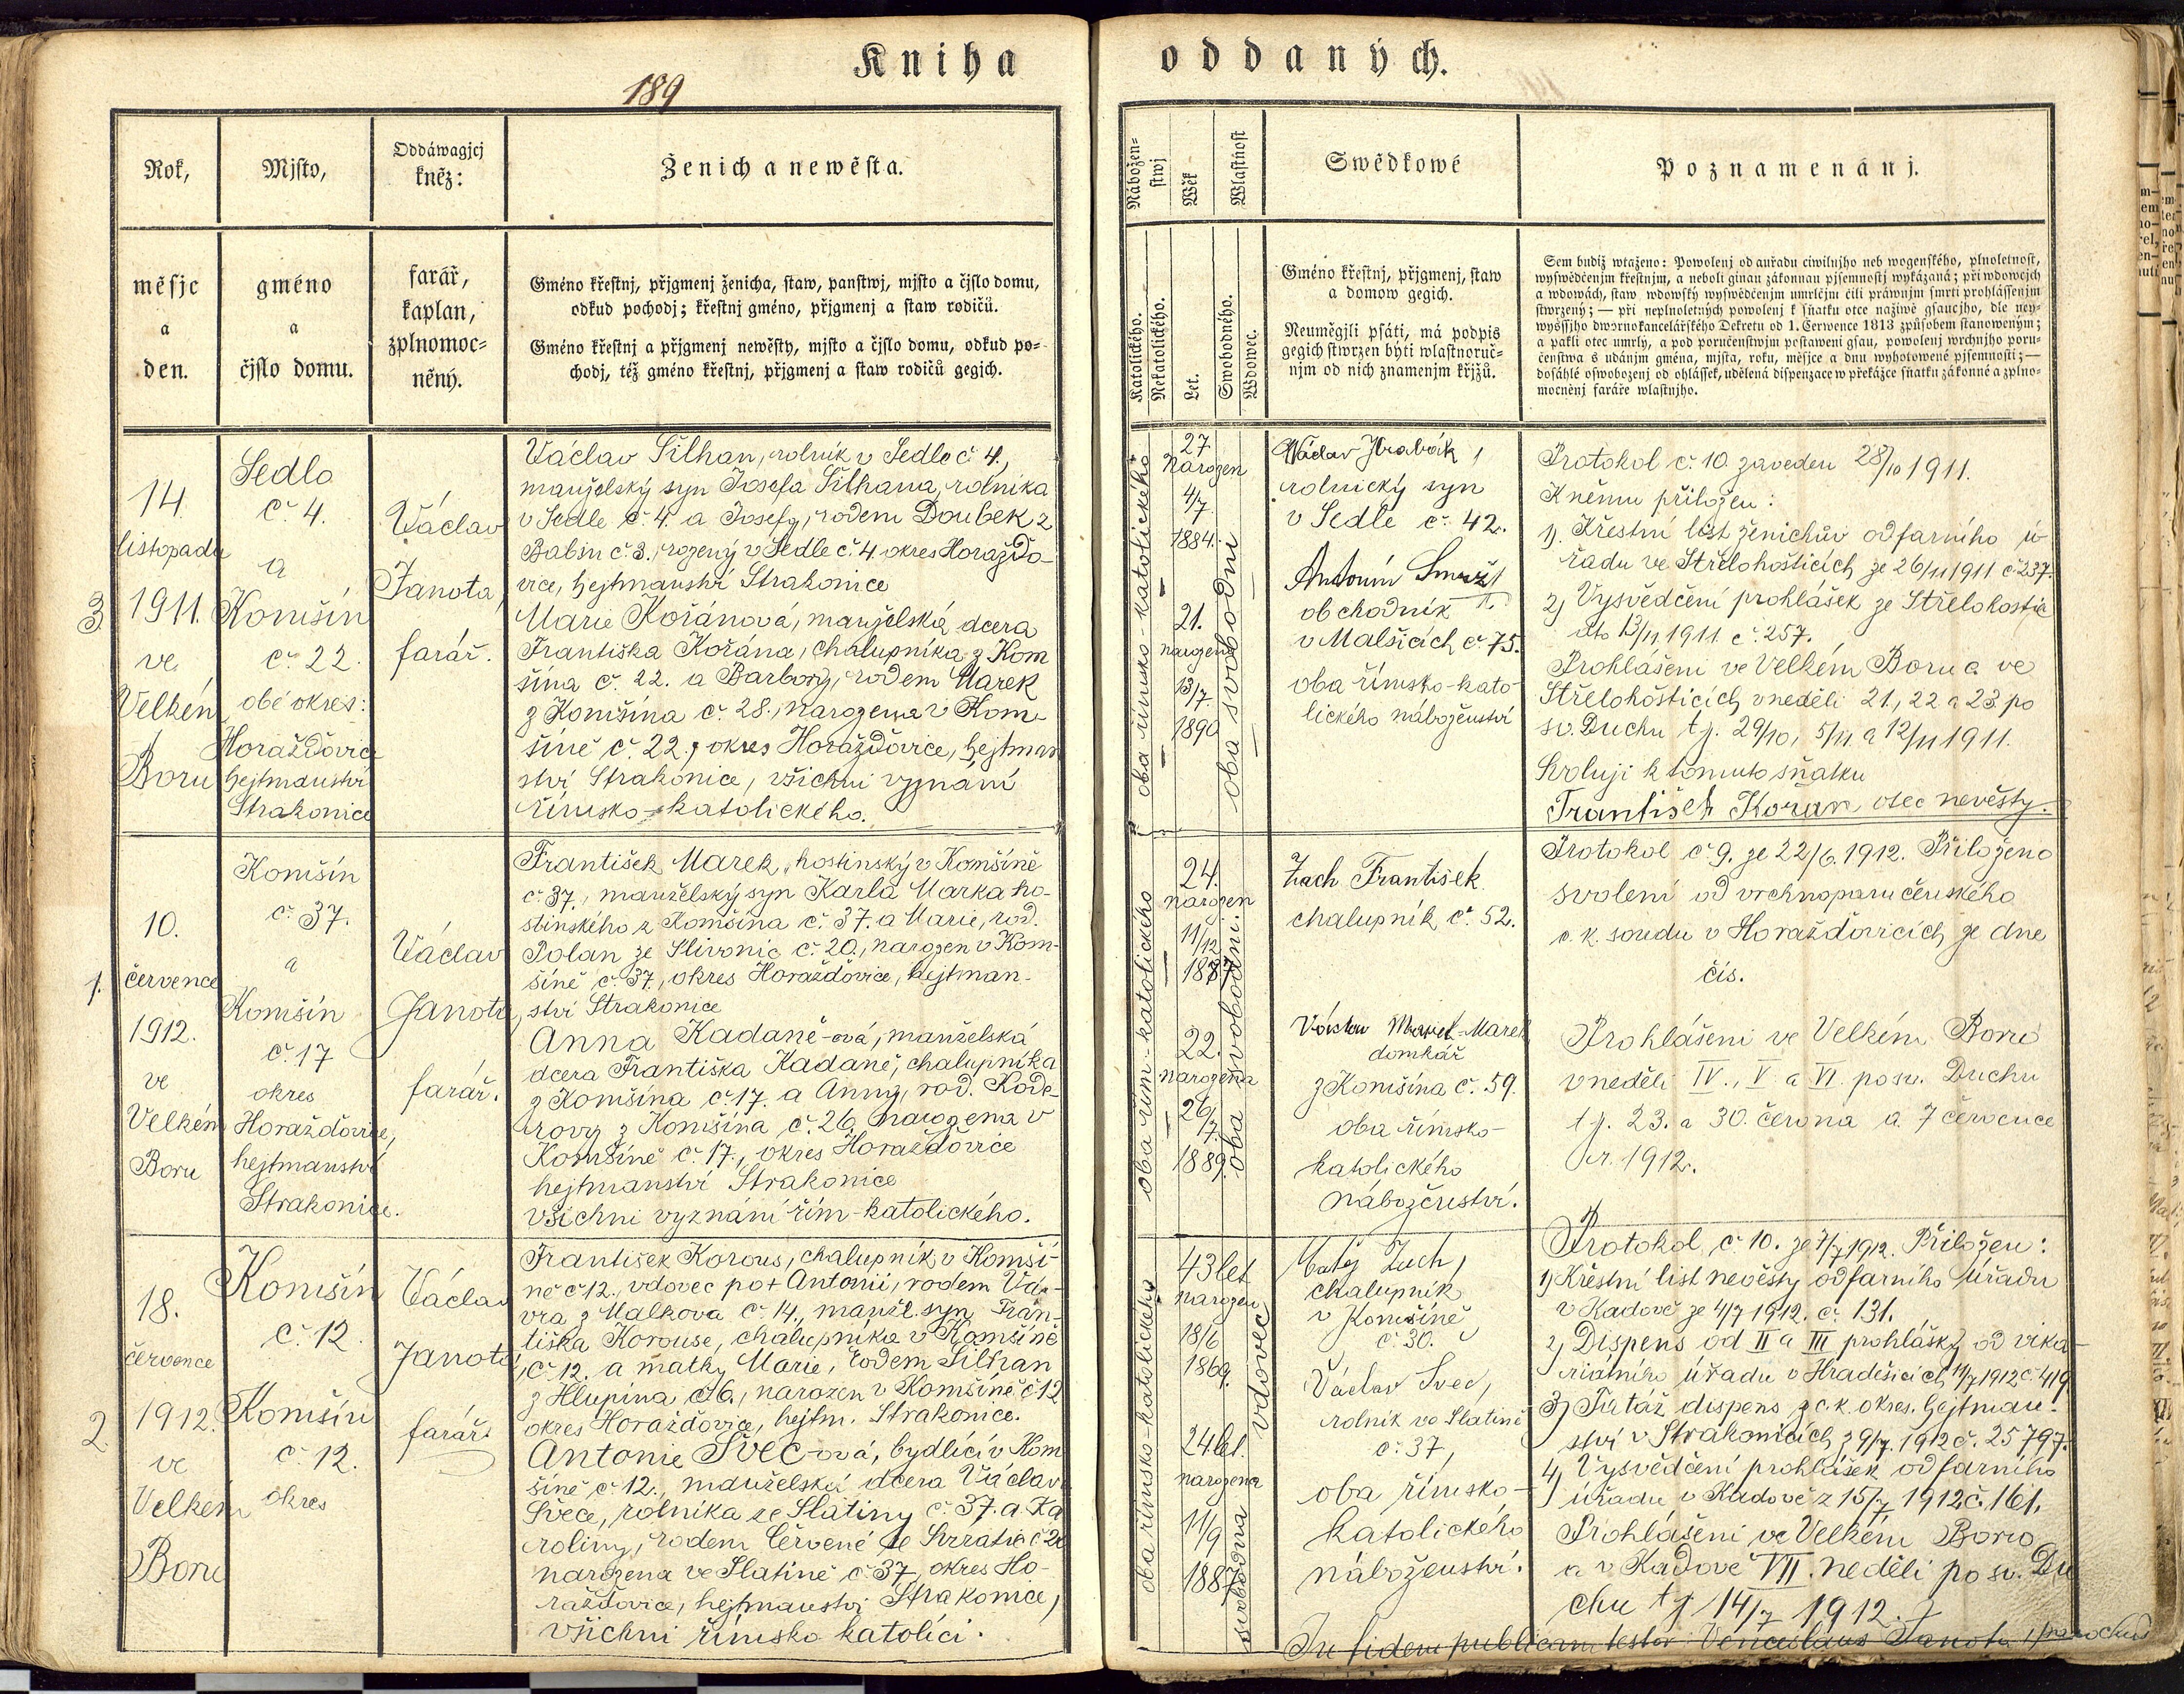 Kniha oddaných.
189
Rok,
Mjsto,
Oddáwagjcj
kněz:
Ženich a newěsta.
měsjc
a
den.
gméno
a
čjslo domu.
farář,
kaplan,
zplnomoc-
něný.
Gméno křestnj, přjgmenj ženicha, staw, panstwj, mjsto a čjslo domu,
odkud pochodj; křestnj gméno, přjgmenj a staw rodičů.
Gméno křestnj a přjgmenj newěsty, mjsto a čjslo domu, odkud po-
chodj, též gméno křestnj, přjgmenj a staw rodičů gegich.
Nábožen-
stwj
Wěk
Wlastnost
Swědkowé
Poznamenánj.
Katolického.
Nekatolického.
Let.
Swobodného.
Wdowec.
Gméno křestnj, přjgmenj, staw
a domow gegich.
Neumějgli psáti, má podpis
gegich stwrzen býti wlastnoruč-
njm od nich znamenjm křjžů.
Sem budiž wtaženo: Powolenj od auřadu ciwilnjho neb wogenského, plnoletnost,
wyswědčenjm křestnjm, a neboli ginau zákonnau pjsemnostj wykázaná; při wdowcjch
a wdowách, staw wdowský wyswědčenjm umrlčjm čili práwnjm smrti prohlássenjm
stwrzený; — při neplnoletných powolenj k sňatku otce naživě gsaucjho, dle ney-
wyššjho dwornokancelářského Dekretu od 1. Července 1813 způsobem stanoweným;
a pakli otec umrlý, a pod poručenstwjm postaweni gsau, powolenj wrchnjho poru-
čenstwa s udánjm gména, mjsta, roku, měsjce a dnu wyhotowené pjsemnosti; —
dosáhlé oswobozenj od ohlášsek, udělená dispenzace w překážce sňatku zákonné a zplno-
mocněnj faráře wlastnjho.
3.
14.
listopadu
1911.
ve
Velkém
Boru
Sedlo
č. 4.
a
Komšín
č. 22.
obé okres:
Horažďovice
hejtmanství
Strakonice
Václav
Janota,
farář.
Václav Šilhan, rolník v Sedle č. 4.,
manželský syn Josefa Šilhana, rolníka
v Sedle č. 4. a Josefy, rodem Doubek z
Babin č. 3., rozený v Sedle č. 4 okres Horažďo-
vice, hejtmanství Strakonice
Marie Kořánová, manželská dcera
Františka Kořána, chalupníka z Kom
šína č. 22. a Barbory, rodem Marek
z Komšína č. 28., narozena v Kom-
šíně č. 22., okres Horažďovice, hejtman
ství Strakonice, všichni vyznání
římsko-katolického.
oba římsko-katolického
27
narozen
4/7
1884.
21.
narozena
13/7
1890
oba svobodni
Václav Hrabák,
rolnický syn
v Sedle č. 42.
Antonín Smrž
obchodník
v Malšicích č. 75.
oba římsko-kato
lického náboženství
Protokol č. 10. zaveden 28/10 1911.
K němu přiložen:
1). Křestní list ženichův od farního ú-
řadu ve Střelohošticích ze 26/11 1911 č. 237.
2) Vysvědčení prohlášek ze Střelohoštic
dto 13/11 1911. č. 257.
Prohlášeni ve Velkém Boru a ve
Střelohošticích v neděli 21., 22 a 23 po
sv. Duchu t. j. 29/10, 5/11 a 12/11 1911.
Svoluji k tomuto sňatku
František Kořan otec nevěsty.
1.
10.
července
1912.
ve
Velkém
Boru
Komšín
č. 37.
a
Komšín
č. 17
okres
Horažďovice,
hejtmanství
Strakonice.
Václav
Janota,
farář.
František Marek, hostinský v Komšíně
č. 37., manželský syn Karla Marka ho-
stinského z Komšína č. 37. a Marie, rod.
Polan ze Slivonic č. 20., narozen v Kom-
šíně č. 37., okres Horažďovice, hejtman-
ství Strakonice
Anna Kadaně-ová, manželská
dcera Františka Kadaně, chalupníka
z Komšína č. 17. a Anny, rod. Kode-
rovy z Komšína č. 26, narozena v
Komšíně č. 17., okres Horažďovice
hejtmanství Strakonice
všichni vyznání řím-katolického.
oba řím-katolického
24.
narozen
11/12
1887
22.
narozena
26/7.
1889.
oba svobodni.
Zach František
chalupník č. 52.
Václav Marek
domkář
z Komšína č. 59.
oba římsko-
katolického
náboženství.
Protokol č. 9. ze 22/6. 1912. Přiloženo
svolení od vrchnoporučenského
c. k. soudu v Horažďovicích ze dne
čís.
Prohlášeni ve Velkém Boru
v neděli IV., V a VI. po sv. Duchu
t. j. 23. a 30. června a 7 července
r. 1912.
2
18.
července
1912.
ve
Velkém
Boru
Komšín
č. 12.
Komšín
č. 12.
okres
Václav
Janota,
farář.
František Korous, chalupník v Komší-
ně č. 12., vdovec po † Antonii, rodem Vá-
vra z Malkova č. 14., manžel. syn Fran-
tiška Korouse, chalupníka v Komšíně
č. 12. a matky Marie, rodem Šilhan
z Hlupína č. 6., narozen v Komšíně č. 12
okres Horažďovice, hejtm. Strakonice.
Antonie Švec-ová, bydlící v Kom
šíně č. 12., manželská dcera Václava
Švece, rolníka ze Slatiny č. 37. a Ka
roliny, rodem Červené ze Svratic č. 20
narozena ve Slatině č. 37, okres Ho-
ražďovice, hejtmanství Strakonice,
všichni římsko katolíci.
oba římsko-katolického
43 let
narozen
18/6
1869.
24 let.
narozena
11/9
1887
vdovec
svobodna
Matěj Zuch,
chalupník
v Komšíně
č. 30.
Václav Švec,
rolník ve Slatině
č. 37,
oba římsko-
katolického
náboženství.
Protokol č. 10. ze 7/7 1912. Přiložen:
1) Křestní list nevěsty od farního úřadu
v Kadově ze 4/7 1912. č. 131.
2) Dispens od II a III prohlášky od vika-
riátního úřadu v Hradešicích 11/7 1912 č. 419
3) Tatáž dispens z c. k. okres. hejtman-
ství v Strakonicích z 9/7. 1912 č. 25797.
4) Vysvědčení prohlášek od farního
úřadu v Kadově z 15/7 1912 č. 161.
Prohlášeni ve Velkém Boru
a v Kadově VII. neděli po sv. Du
chu t. j. 14/7 1912.
In fidem publicam testor Venceslaus Janota, parochus